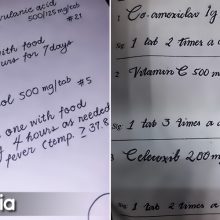 vulanic acid
500/125 mg/tab
#21
with food
urs for 7 days
ol 500 mg/tab #5
one with food
4 hours as needed
fever (temp. ≥ 37.8
ia
1 Co-amoxiclav 1g
Sig: 1 tab 2 times a d
2 Vitamin C 500 m
Sig: 1 tab 3 times a d
3 Celecoxib 200 mg
1 tab 2 times a